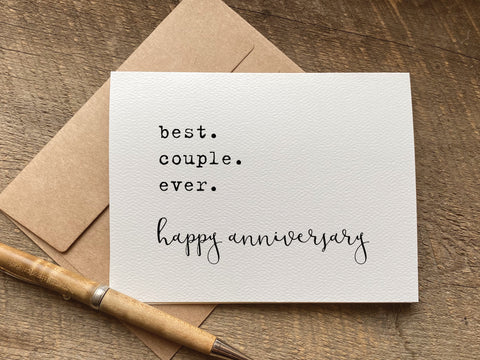 best.
couple.
ever.
happy anniversary